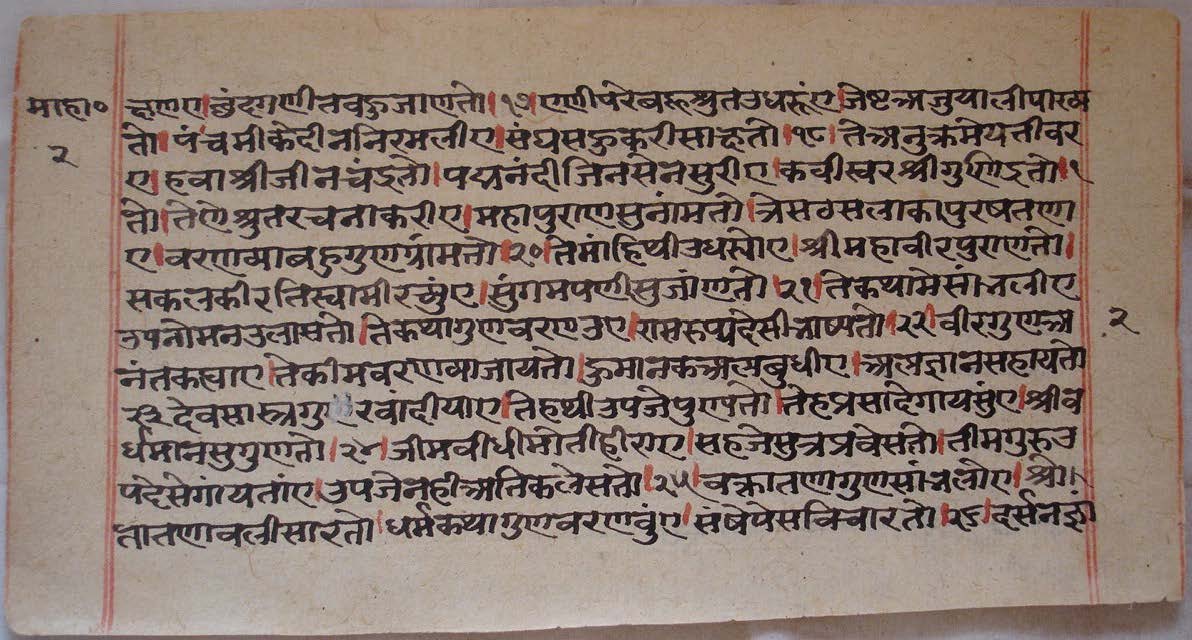 माहा०
२
ए। एणी परे बहु श्रुत उधरूं ए। जेष्ट अजुयाली पाख्य
तो। पंचमी के दीन निरमली ए। संघ सहु करी साहतो। १८। ते अनुक्रमे यतीवर
ए। हवा श्री जीनचंद्रतो। पद्मनंदी जिनसेन सुरी ए। कवीस्वर श्री गुणिंद्रतो। १
तो। तेणे श्रुत रचना करी ए। महापुराण सुनांमतो। त्रेसठ सलाका पुरषतणा
ए। वरणव्या बहु गुणग्रांमतो। २०। ते मांहिथी उधस्यो ए। श्री महावीर पुराणतो।
सकलकीरति स्वामी रच्युं ए। सुंगम पणी सुजांणतो। २१। ते कथा मे सांभली ए
उपनो मन उलासतो। ते कथा गुण वरणउ ए। रास रुप्य देसी भाष्यतो। २२। वीर गुण अ
२
नंत कह्या ए। ते कीम वरणव्या जायतो। हु मानक अल्प बुधी ए। अल्प ज्ञान सहायतो
२३ देव सास्त्र गु रवांदीया ए। तेहथी उपजे पुण्यतो। तेह प्रसादे गायसुं ए। श्री व
र्धमान सुगुणतो। २४। जीम वीधी मोती हीरा ए। सहजे सुत्र प्रवेसतो। तीम गुरु उ
पदेसे गायतां ए। उपजे नहीं अति कलेसतो। २५। वक्तातणा गुण सांभलो ए। श्रो।
तातणा वली सारतो। धर्मकथा गुण वरणवुं ए। संषेपे सविचारतो। २६। दर्सन